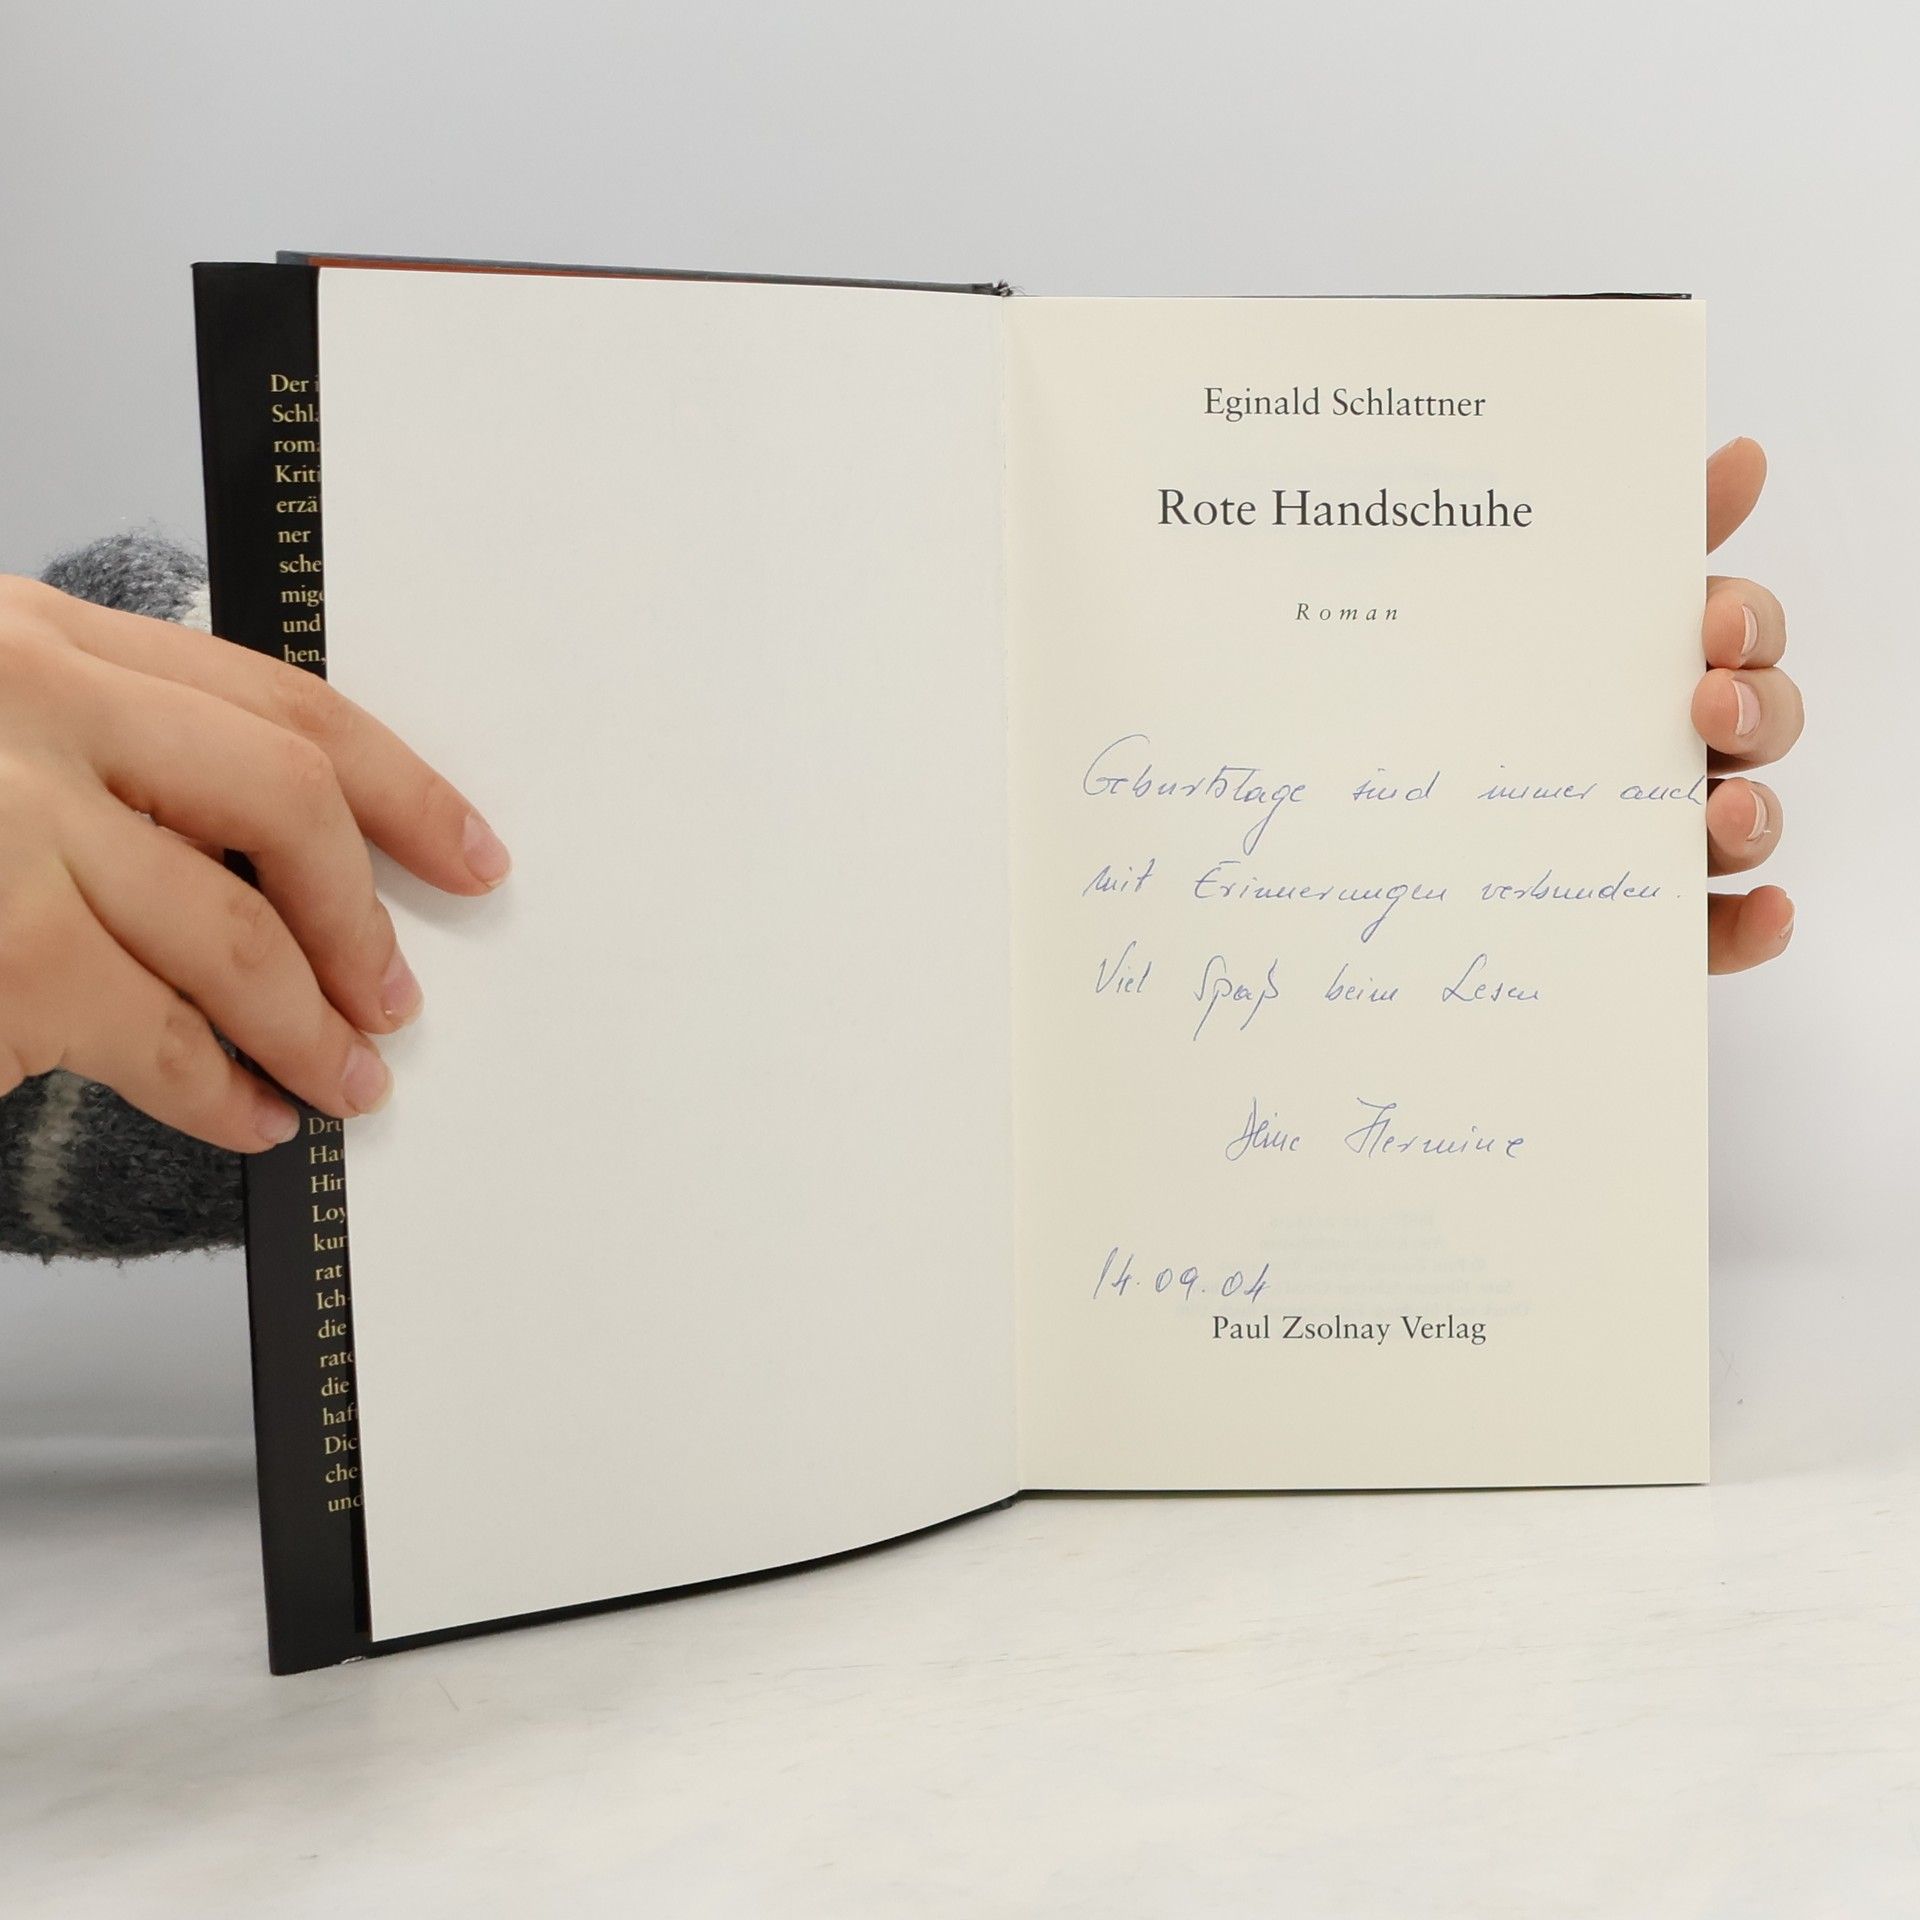 Der
Schl
rom
Kriti
erzä
ner
sche
mig
und
hen,
Dru
Ha
Hir
Loy
kun
rat
Ich-
die
rate
die
haf
Dic
che
und
Eginald Schlattner
Rote Handschuhe
Roman
Geburtstage sind immer auch
mit Erinnerungen verbunden.
Viel Spaß beim Lesen
Deine Hermine
14.09.04
Paul Zsolnay Verlag